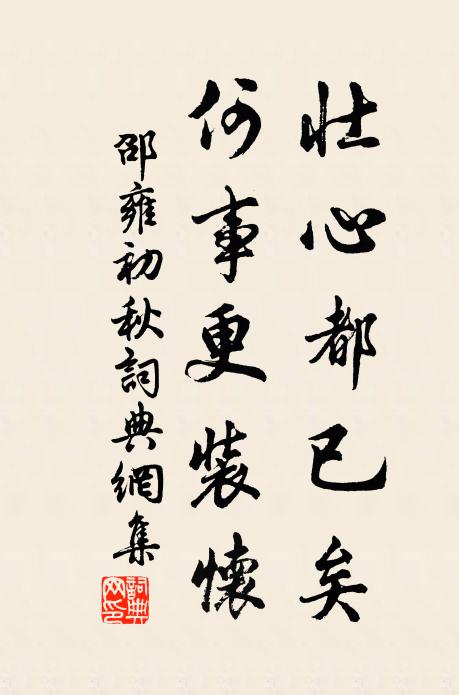 壯心都已矣
何事更裝懷
邵雍初秋詞典網集
詞典網印